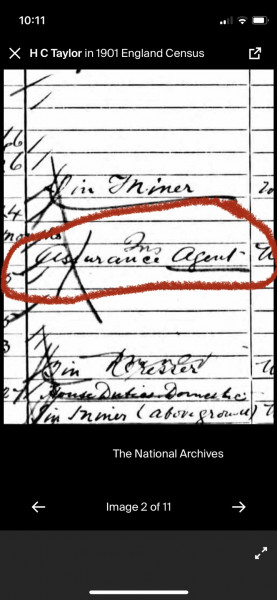 10:11
H C Taylor in 1901 England Census
Tin Miner
Ins
Assurance Agent
Tin Dresser
House Duties Domestic
Tin Miner (above ground)
The National Archives
Image 2 of 11